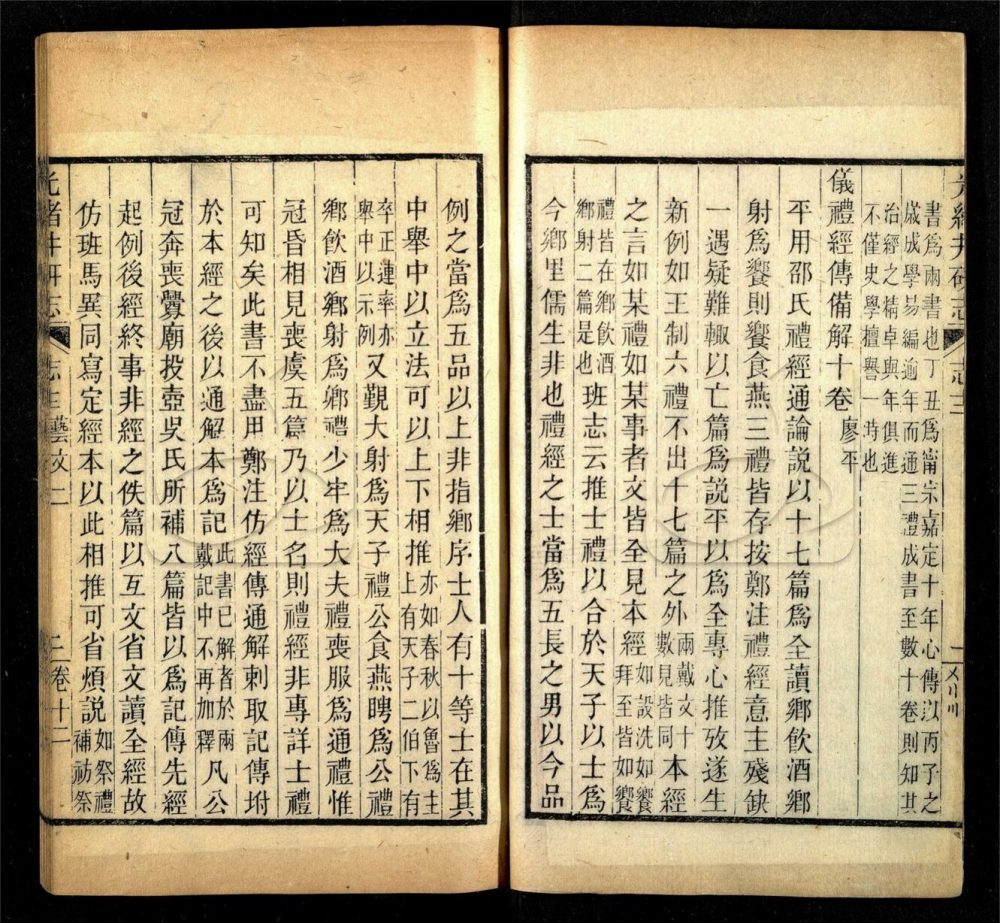 光緒井研志
志三
書爲兩書也丁丑爲甯宗嘉定十年心傳以丙子之
歲成學易編逾年而通三禮成書至數十卷則知其
治經之精卓與年俱進
不僅史學擅譽一時也
儀禮經傳備解十卷 廖平
平用邵氏禮經通論説以十七篇爲全讀鄉飲酒鄉
射爲饗則饗食燕三禮皆存按鄭注禮經意主殘缺
一遇疑難輙以亡篇爲説平以爲全專心推攷遂生
新例如王制六禮不出十七篇之外兩戴文十數見皆同本經
之言如某禮如某事者文皆全見本經如設洗如饗拜至皆如饗
禮皆在鄉飲酒鄉射二篇是也班志云推士禮以合於天子以士爲
今鄉里儒生非也禮經之士當爲五長之男以今品
例之當爲五品以上非指鄉序士人有十等士在其
中舉中以立法可以上下相推亦如春秋以魯爲主上有天子二伯下有
卒正連率亦舉中以示例又覲大射爲天子禮公食燕聘爲公禮
鄉飲酒鄉射爲鄉禮少牢爲大夫禮喪服爲通禮惟
冠昏相見喪虞五篇乃以士名則禮經非專詳士禮
可知矣此書不盡用鄭注仿經傳通解刺取記傳坿
於本經之後以通解本爲記此書已解者於兩戴記中不再加釋凡公
冠奔喪釁廟投壺吳氏所補八篇皆以爲記傳先經
起例後經終事非經之佚篇以互文省文讀全經故
仿班馬異同寫定經本以此相推可省煩説如祭禮補祊祭
光緒井研志
志三藝文二
二卷十二